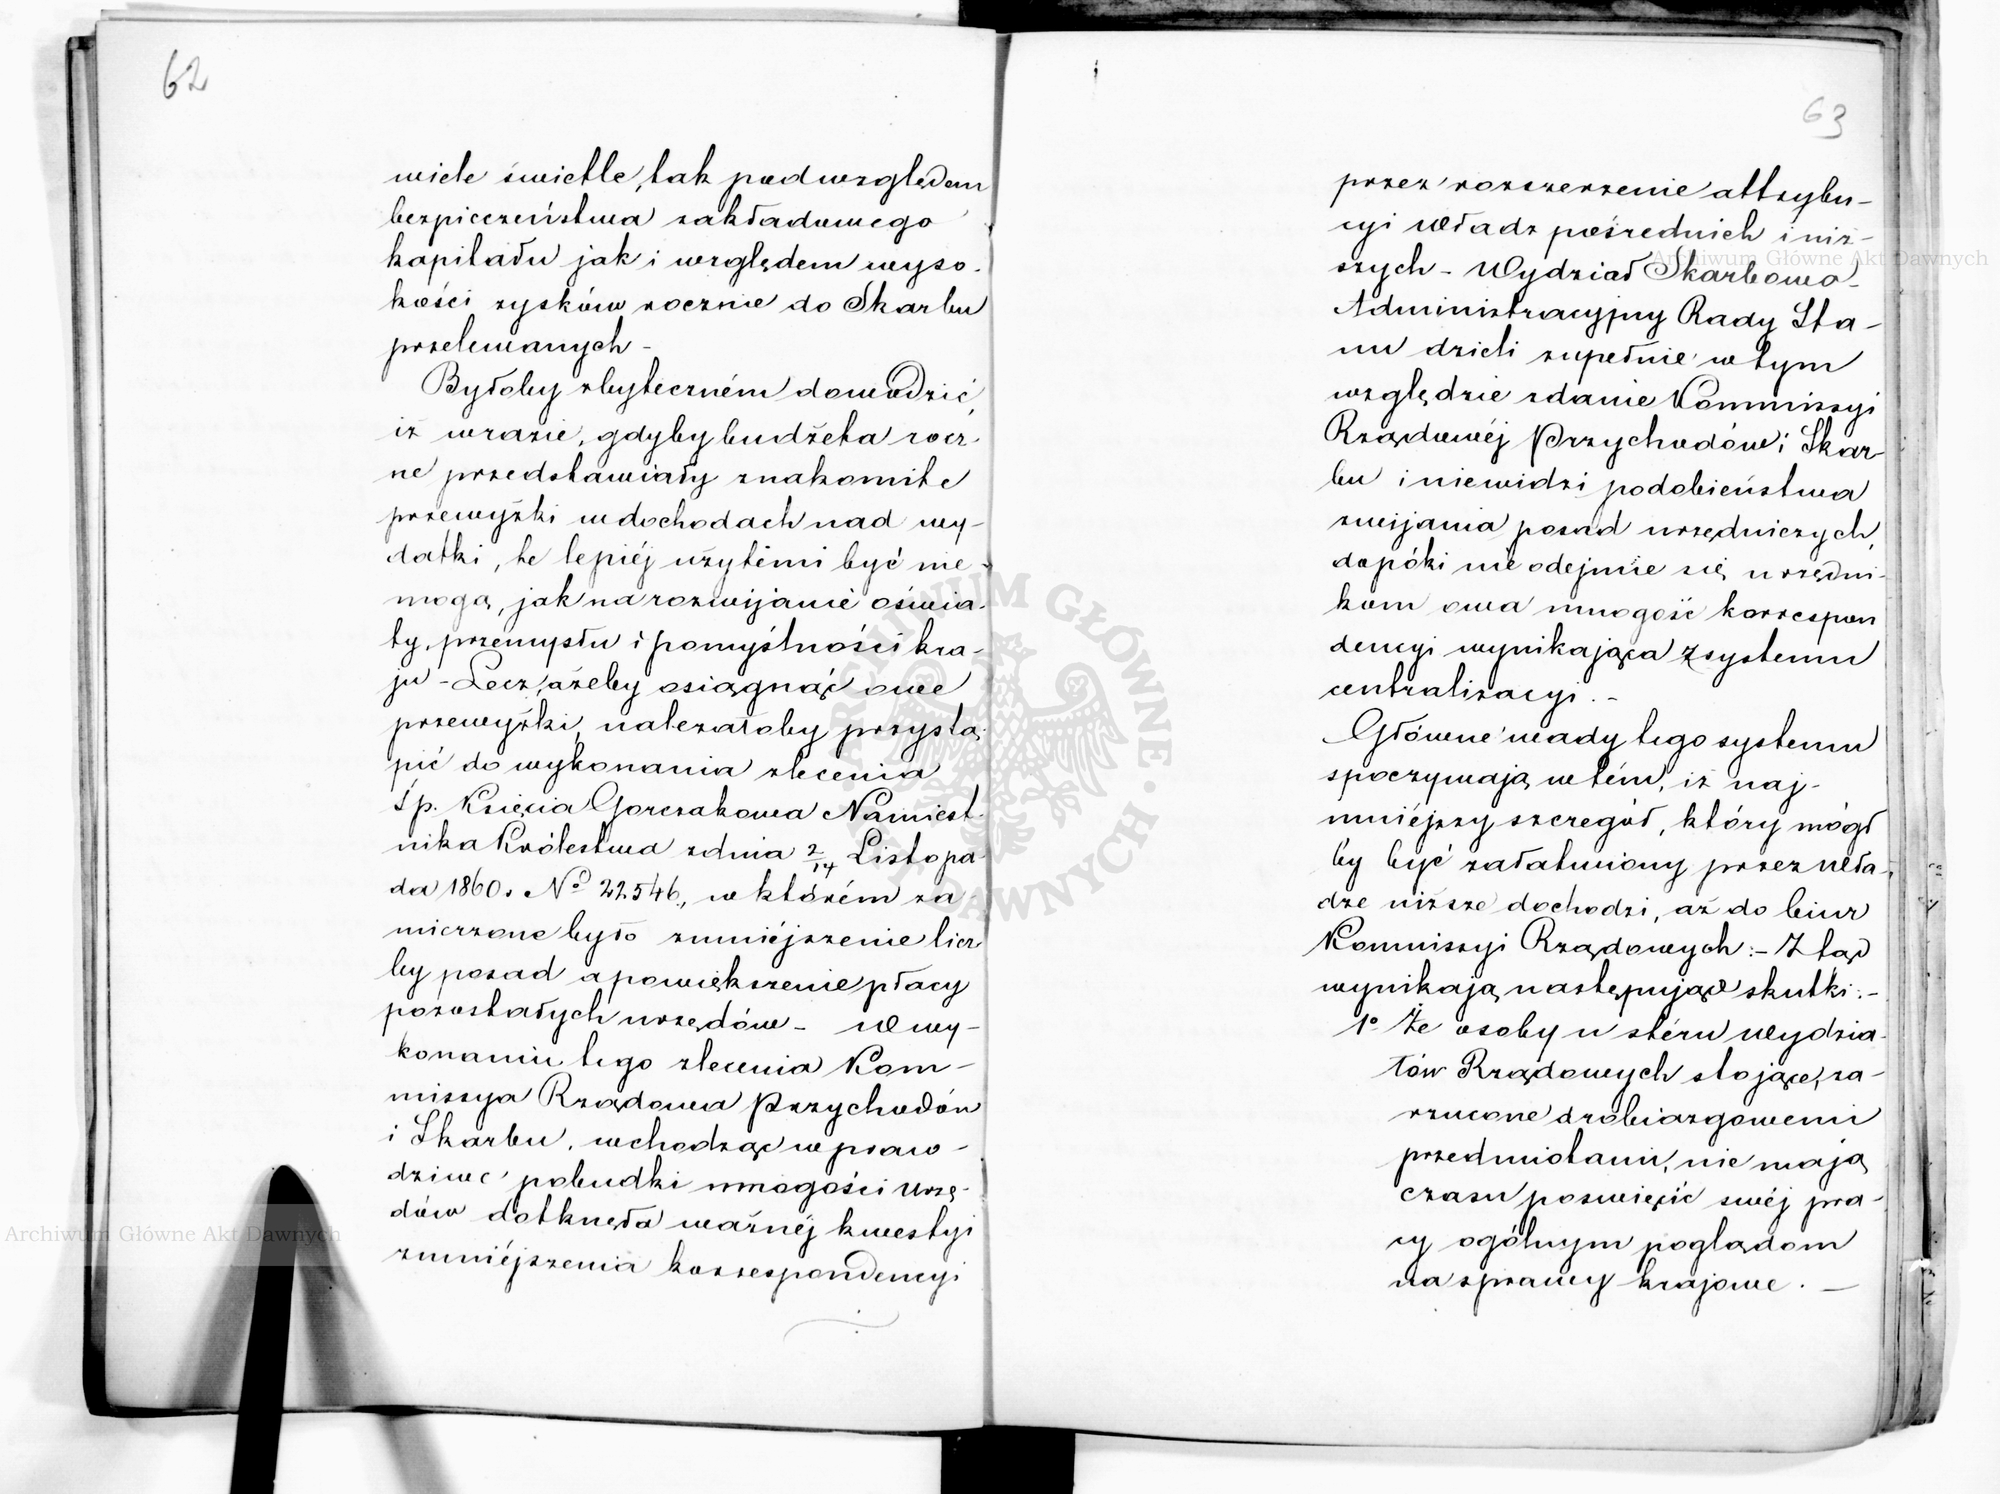 62
wiele świetle, tak pod względem
bezpieczeństwa zakładowego
kapitału jak i względem wyso-
kości zysków rocznie do Skarbu
przelewanych -
Byłoby zbyteczném dowodzić,
iż wrazie, gdyby budżeta rocz-
ne przedstawiały znakomite
przewyżki w dochodach nad wy-
datki, te lepiéj użytémi być nie-
mogą, jak na rozwijanie oświa-
ty, przemysłu i pomyślności kra-
ju - Lecz, ażeby osiągnąć owe
przewyżki, należałoby przystą-
pić do wykonania zlecenia
śp. Księcia Gorczakowa Namiest-
nika Królestwa zdnia 2/14 Listopa-
da 1860. No 22.546., w którém za-
mierzono było zmniéjszenie licz-
by posad a powiększenie płacy
pozostałych urzędów - W wy-
konaniu tego zlecenia Kom-
missya Rządowa Przychodów
i Skarbu, wchodząc w praw-
dziwe pobudki mnogości urzę-
dów dotknęła ważnéj kwestyi
zmniéjszenia korrespondencyi
63
przez rozszerzenie attrybu-
cyi Władz pośrednich i niż-
szych - Wydział Skarbowo-
Administracyjny Rady Sta-
nu dzieli zupełnie w tym
względzie zdanie Kommissyi
Rządowéj Przychodów i Skar-
bu i niewidzi podobieństwa
zwijania posad urzędniczych,
dopóki nie odejmie się urzędni-
kom owa mnogość korrespon
dencyi wynikająca z systemu
centralizacyi. -
Główne wady tego systemu
spoczywają w tém, iż naj-
mniéjszy szczegół, który mógł
by być załatwiony przez Wła-
dze niższe dochodzi, aż do biur
Kommissyi Rządowych: - Ztąd
wynikają następujące skutki: -
1o Że osoby u stéru Wydzia-
łów Rządowych stojące, za-
rzucone drobiazgowemi
przedmiotami, nie mają
czasu poświęcić swéj pra-
cy ogólnym poglądom
na sprawy krajowe. -
Archiwum Główne Akt Dawnych
Archiwum Główne Akt Dawnych
ARCHIWUM GŁÓWNE AKT DAWNYCH